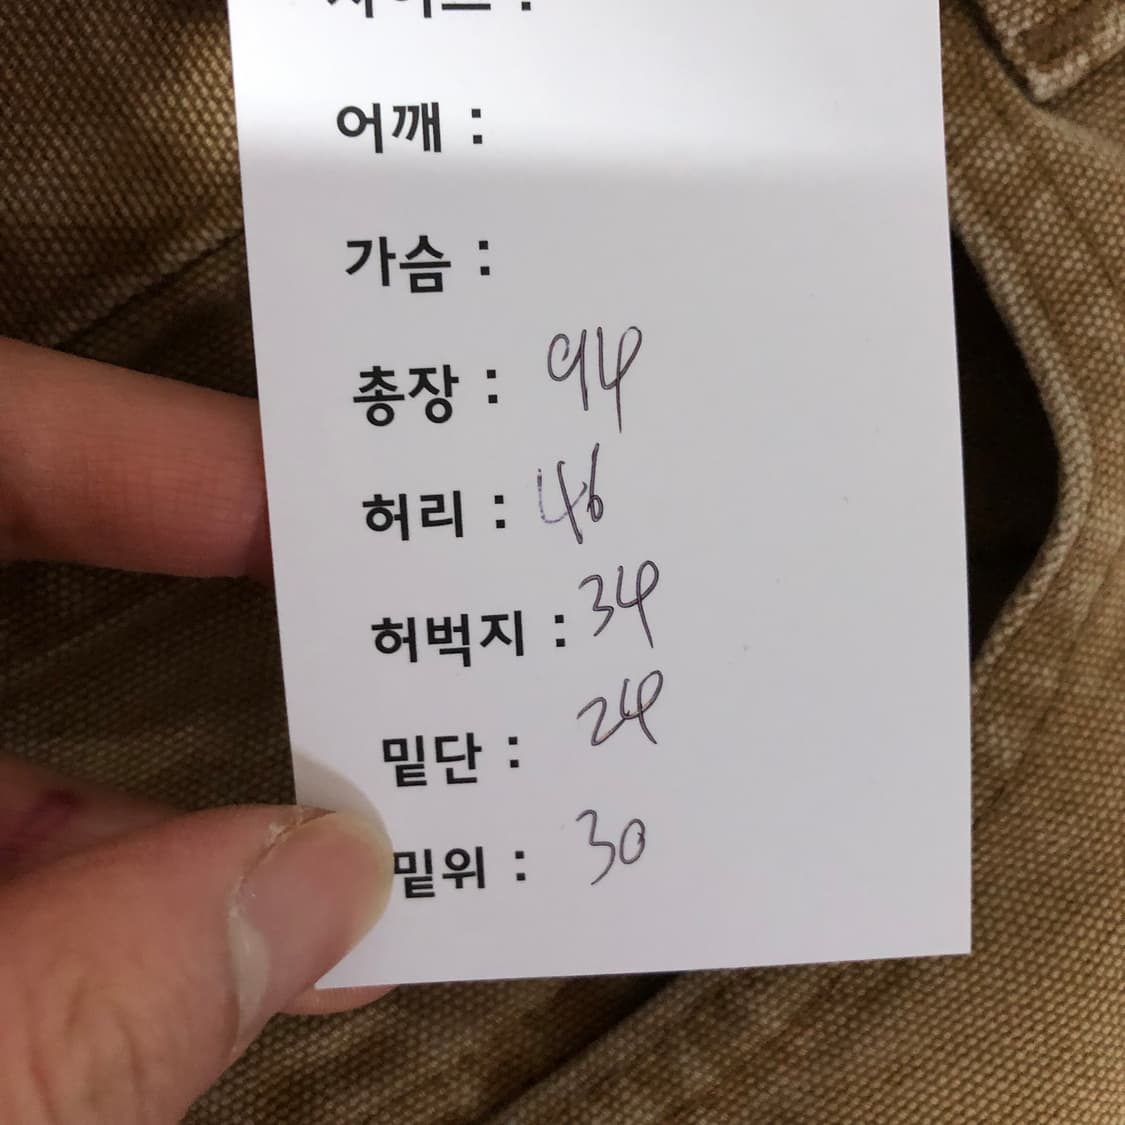 사이즈 :
어깨 :
가슴 :
총장 : 94
허리 : 46
허벅지 : 34
밑단 : 24
밑위 : 30